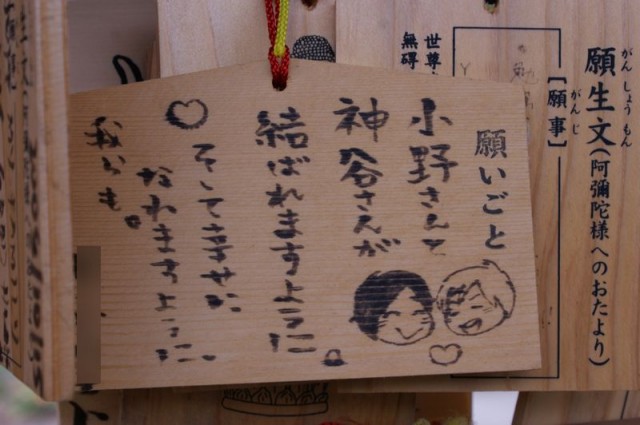 願いごと
小野さんと
神谷さんが
結ばれますように
そして幸せに
なれますように
我らも。
願生文(阿彌陀様へのおたより)
がんしょうもん
[願事]
がんじ
世尊
無碍